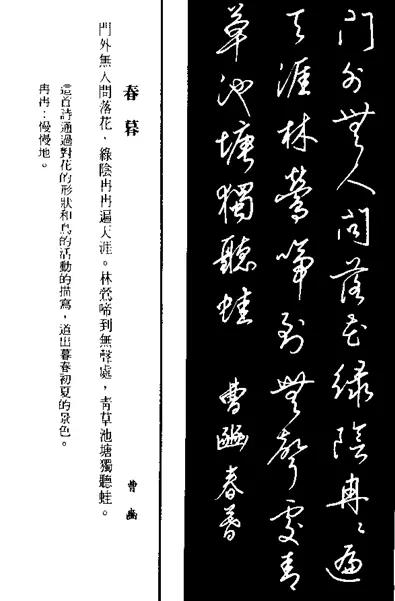 門外無人問落花綠陰冉々遍
天涯林鶯啼到無聲處青
草池塘獨聽蛙 曹豳春暮
春暮 曹豳
門外無人問落花，綠陰冉冉遍天涯。林鶯啼到無聲處，青草池塘獨聽蛙。
這首詩通過對花的形狀和鳥的活動的描寫，道出暮春初夏的景色。
冉冉：慢慢地。